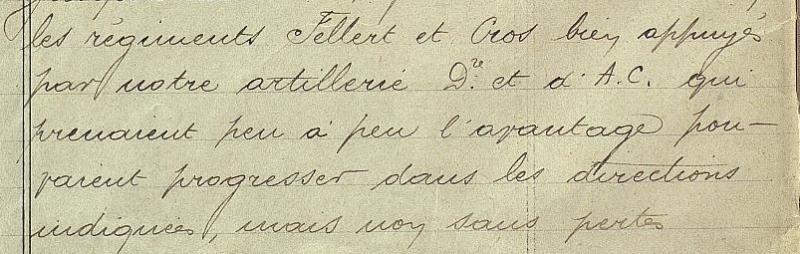 les régiments Fellert et Cros bien appuyés
par notre artillerie D.re et d'A.C. qui
prenaient peu à peu l'avantage pou-
vaient progresser dans les directions
indiquées, mais non sans pertes